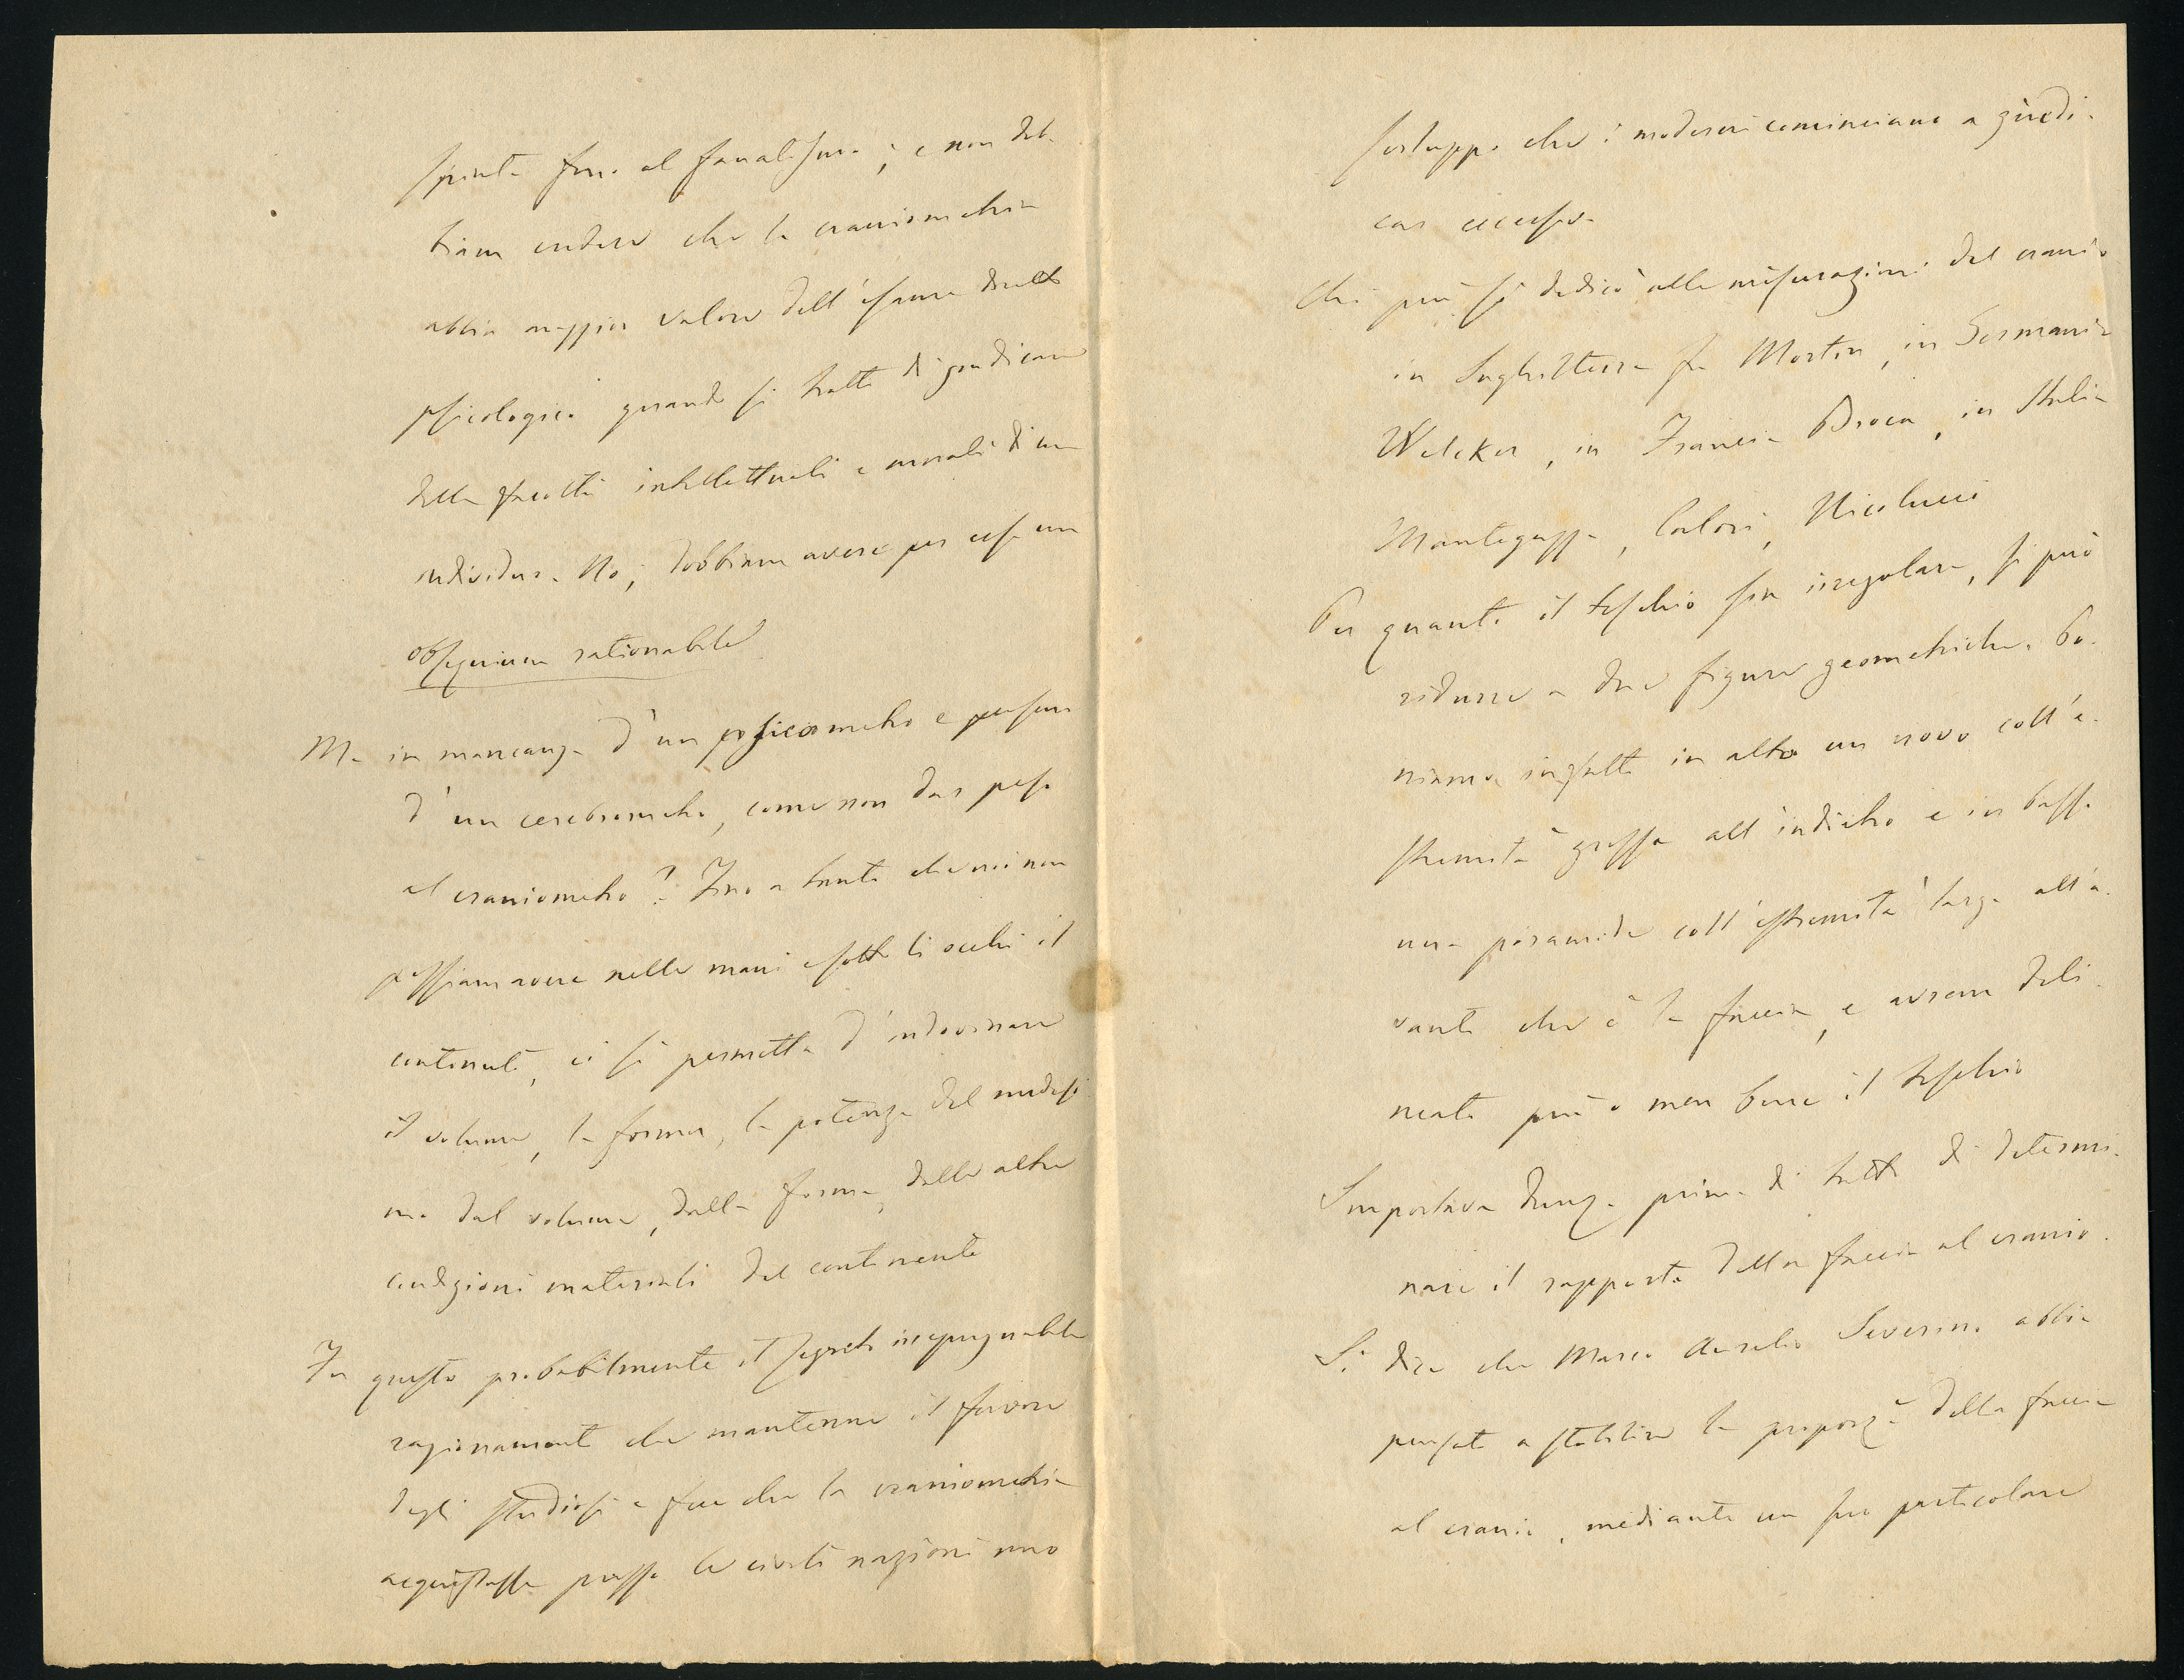 spinta fino al fanatismo; e non deb-
biam credere che la craniometria
abbia maggior valore dell'esame diretto
psicologico quando si tratti di giudicare
delle facoltà intellettuali e morali di un
individuo. No; dobbiam avere per essa un
obsequium rationabile
Ma in mancanza d'un psicometro e persino
d'un cerebrometro, come non dar peso
al craniometro? Fino a tanto che noi non
possiam avere nelle mani e sotto li occhi il
contenuto, ci si permetta d'indovinare
il volume, la forma, la potenza del medesi
mo dal volume, dalla forma, dalle altre
condizioni materiali del contenente
Fu questo probabilmente il segreto inespugnabile
ragionamento che mantenne il favore
degli studiosi e fece che la craniometria
acquistasse presso le civili nazioni uno
sviluppo che i moderni cominciano a giudi-
car eccessivo
Chi più si dedicò alle misurazioni del cranio
in Inghilterra fu Morton, in Germania
Welcker, in Francia Broca, in Italia
Mantegazza, Calori, Nicolucci
Per quanto il teschio sia irregolare, si può
ridurre a due figure geometriche. Po-
niamo infatti in alto un uovo coll'e-
stremità grossa all'indietro e in basso
una piramide coll'estremità larga all'a-
vanti che è la faccia, e avrem deli-
neato più o men bene il teschio
Importava dunq. prima di tutto di determi-
nare il rapporto della faccia al cranio.
Si dice che Marco Aurelio Severino abbia
pensato a stabilire la proporz. della faccia
al cranio, mediante un suo particolare